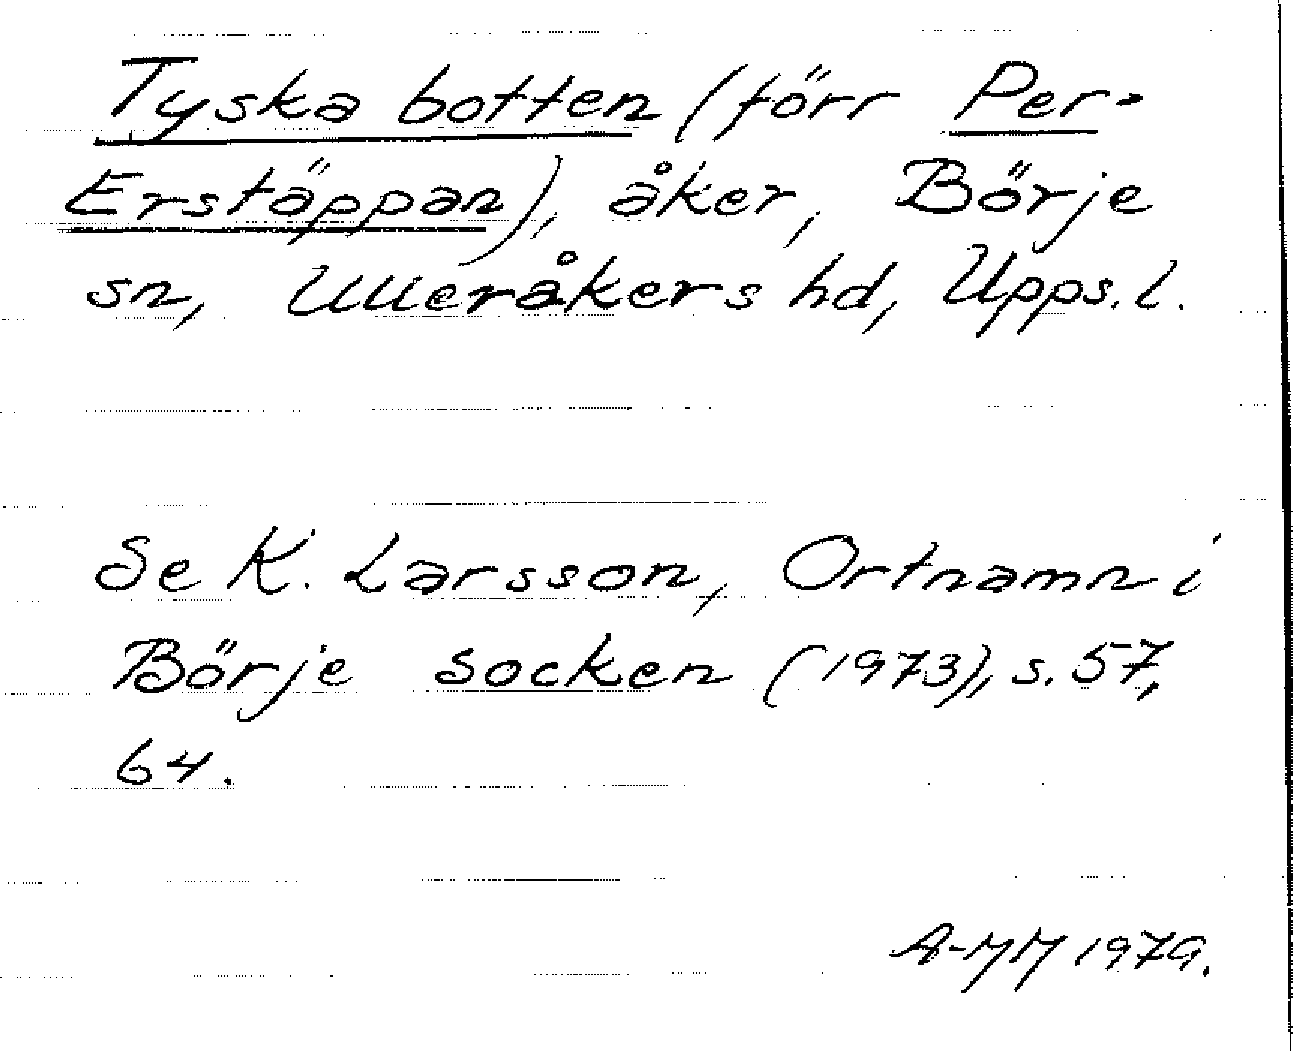 Tyska botten (förr Per-
Erstäppan), åker, Börje
sn, Ulleråkers hd, Upps. l.
Se K. Larsson, Ortnamn i
Börje socken (1973), s. 57,
64.
1979.